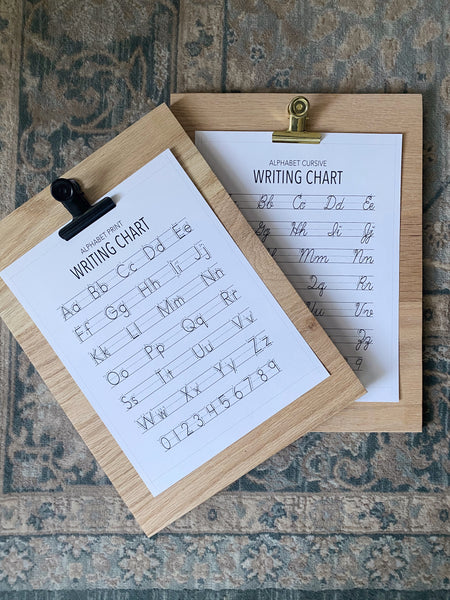 ALPHABET PRINT
WRITING CHART
Aa Bb Cc Dd Ee
Ff Gg Hh Ii Jj
Kk Ll Mm Nn
Oo Pp Qq Rr
Ss Tt Uu Vv
Ww Xx Yy Zz
0 1 2 3 4 5 6 7 8 9
ALPHABET CURSIVE
WRITING CHART
Bb Cc Dd Ee
Gg Hh Ii Jj
Mm Nn
Qq Rr
Uu Vv
Zz
9